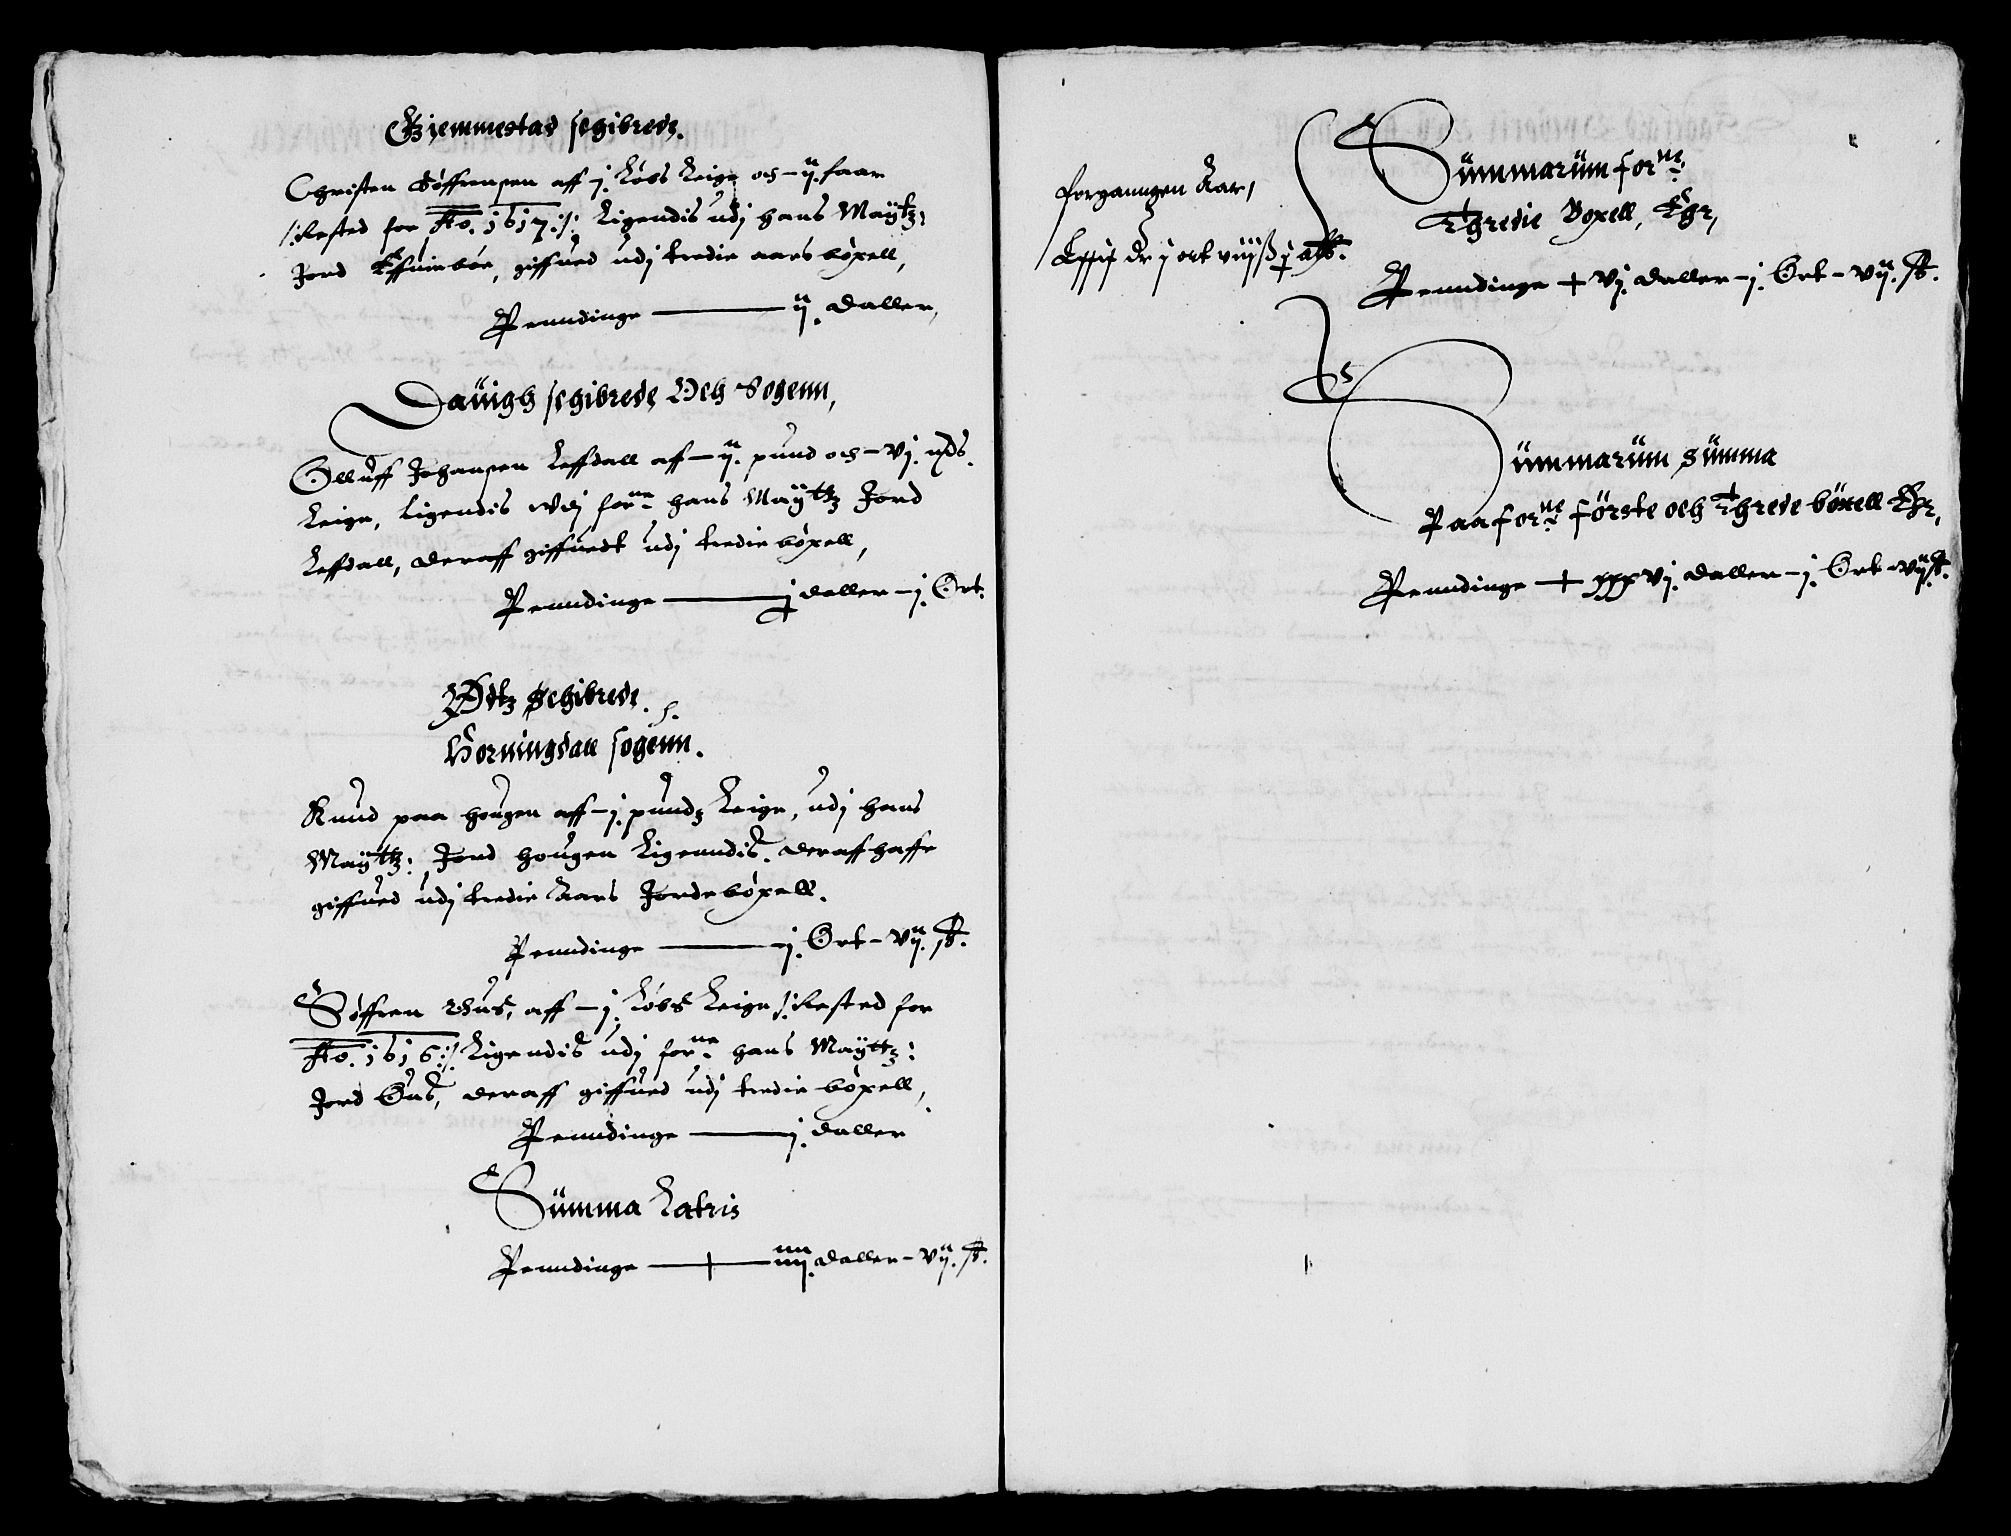 Giemmestad schibrede.
Christen Søffrensen aff - j. Løbs Leige och - ij. faar
/: Rested for Ao. 1617 :/: Ligendis udj hans Maÿtz:
Jord Effuinboe, giffued udj tredie aars bøxell,
Penndinge ——— ij. daller,
Dauigh schibrede Och Sogenn,
Olluff Johansen Leffdall aff - ij. pund och - vj. mrks.
Leige, Ligendis vdj forne: hans Maÿttz Jord
Leffdall, deraff giffuedt udj tredie bøxell,
Penndinge ——— j daller - j. Ort.
Østz Schibrede.
Horningdall sogenn.
Knud paa hougen aff - j. pundz Leige, udj hans
Maÿttz: Jord hougen Ligenndis. deraff haffr
giffued udj tredie Aars Jordebøxell.
Penndinge ——— j. Ort - vij. ß.
Søffren Huus, aff - j. Løbs Leige /: Rested for
Ao. 1616 :/: Ligendis udj forne: hans Maÿttz:
Jord Huus, deraff giffued udj tredie bøxell,
Penndinge ——— j. daller
Summa Latris
Penndinge ——— iiiij. daller - vij. ß.
forganngen Aar,
Lxxix dr j ort viij ß j alb.
Summarum forne:
Thredie Boxell, Ehr,
Penndinge + vj. daller - j. Ort - vij. ß.
Summarum Summa
Paa forne: første och Threde bøxell Ehr,
Penndinge + xxxvj. daller - j. Ort - vij ß.